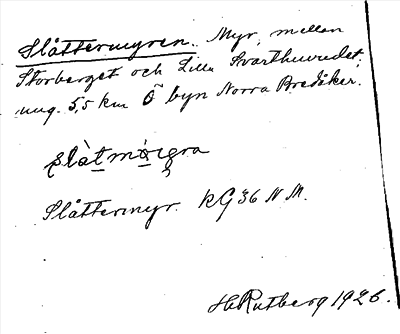 Slåttermyren. Myr, mellan
Storberget och Lilla Svarthuvudet,
ung. 5,5 km Ö byn Norra Bredåker.
Slåttermyr. RG 36 N.M.
H. Rutberg 1926.